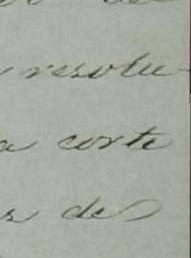 de
resolu-
a corte
s de